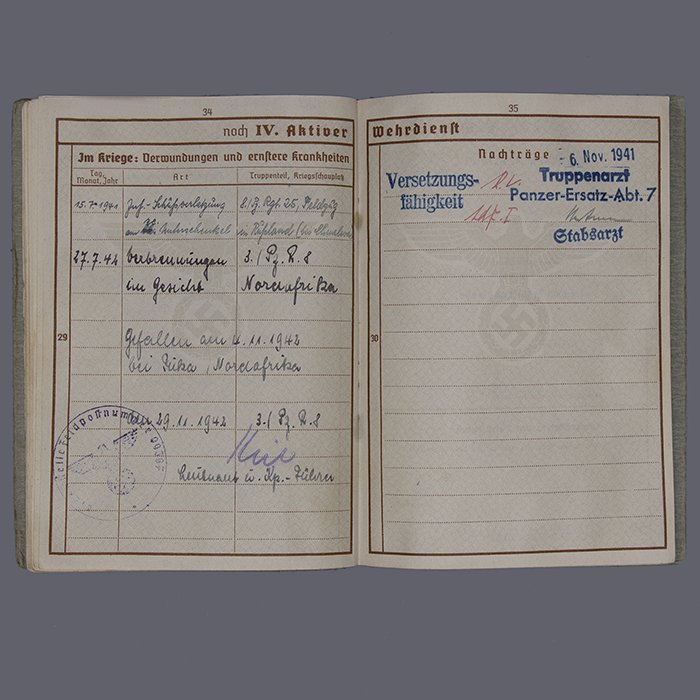 34
noch IV. Aktiver
Im Kriege: Verwundungen und ernstere Krankheiten
Tag, Monat, Jahr
Art
Truppenteil, Kriegsschauplatz
15.7.1941
Inf.-Schußverletzung
2./Pz. Rgt. 25, Feldzug
am Unterschenkel
in Rußland
27.7.42
Verbrennungen
3./Pz. R. 8
im Gesicht
Nordafrika
29
Gefallen am 4.11.1942
bei Fuka, Nordafrika
den 29.11.1942
3./Pz. R. 8
Leutnant u. Kp.-Führer
Feldpostnummer
35
Wehrdienst
Nachträge
- 6. Nov. 1941
Versetzungs-
fähigkeit
Truppenarzt
Panzer-Ersatz-Abt. 7
Stabsarzt
30